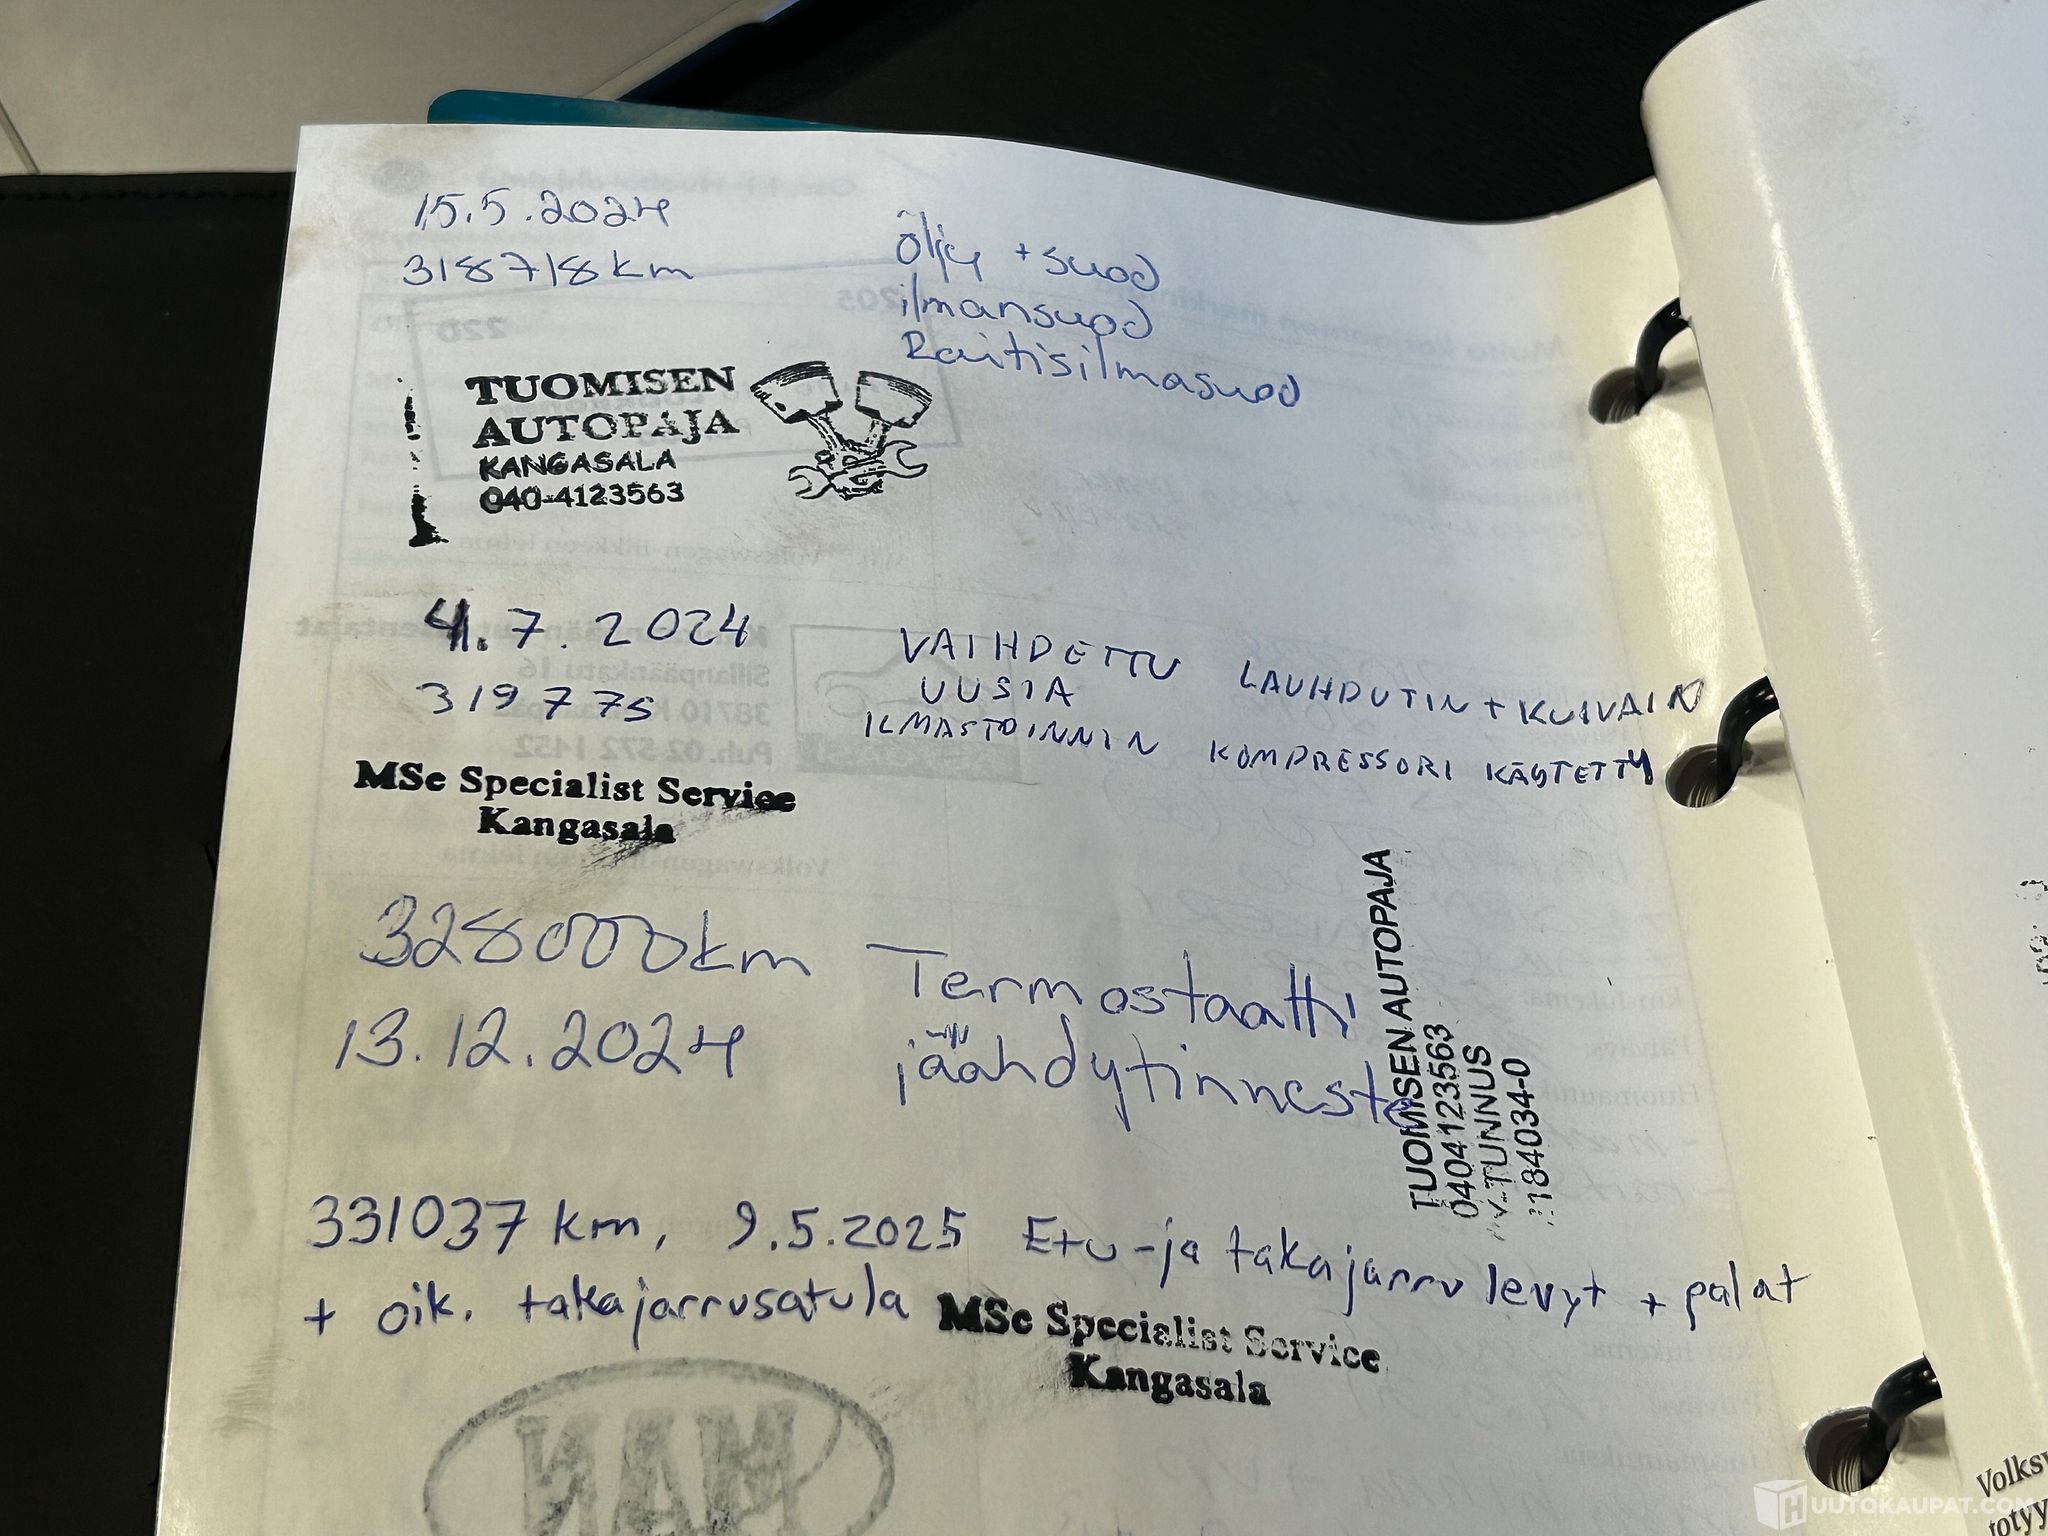 15.5.2024
318718 km
öljy + suod
ilmansuod
Raitisilmasuod
TUOMISEN
AUTOPAJA
KANGASALA
040-4123563
4.7.2024
319775
VAIHDETTU LAUHDUTIN + KUIVAIN
UUSIA
ILMASTOINNIN KOMPRESSORI KÄYTETTY
MSc Specialist Service
Kangasala
328000km
13.12.2024
Termostaatti
jäähdytinneste
TUOMISEN AUTOPAJA
0404123563
Y-TUNNUS
1184034-0
331037 km, 9.5.2025 Etu-ja takajarru levyt + palat
+ oik. takajarrusatula
MSc Specialist Service
Kangasala
MAN
220
205
Sillanpäänkatu 16
Puh. 02-572 1452
Volksw
totyy
HUUTOKAUPAT.COM